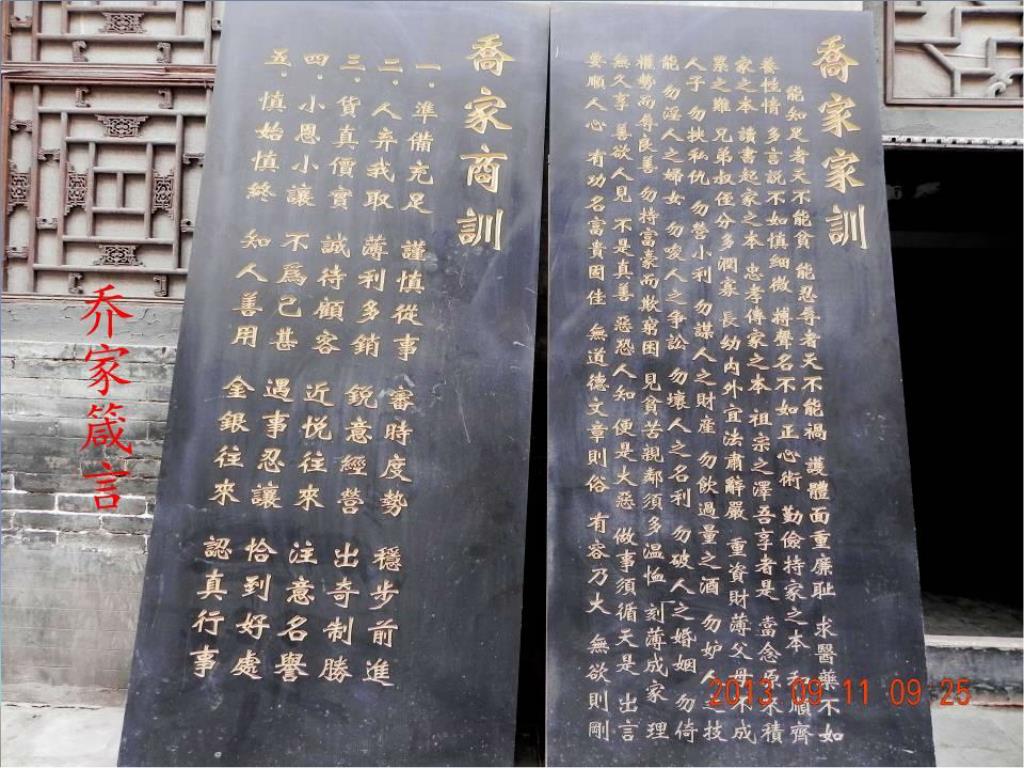 喬家家訓
能知足者天不能貧 能忍辱者天不能禍 護體面重廉耻 求醫藥不如
養性情 多言說不如慎細微 搏聲名不如正心術 勤儉持家之本 和順齊
家之本 讀書起家之本 忠孝傳家之本 祖宗之澤吾享者是 當念原來積
累之難 兄弟叔侄分多潤寡 長幼内外宜法肅辭嚴 重資財薄父母不成
人子 勿挾私仇 勿營小利 勿謀人之財産 勿飲過量之酒 勿妒人之技
能 勿淫人之婦女 勿唆人之争訟 勿壞人之名利 勿破人之婚姻 勿倚
權勢而辱良善 勿持富豪而欺窮困 見貧苦親鄰須多温恤 刻薄成家 理
無久享 善欲人見 不是真善 惡恐人知 便是大惡 做事須循天是 出言
要順人心 有功名富貴固佳 無道德文章則俗 有容乃大 無欲則剛
喬家商訓
一．準備充足 謹慎從事 審時度勢 穩步前進
二．人弃我取 薄利多銷 銳意經營 出奇制勝
三．貨真價實 誠待顧客 近悦往來 注意名譽
四．小恩小讓 不爲已甚 遇事忍讓 恰到好處
五．慎始慎終 知人善用 金銀往來 認真行事
乔家箴言
2013 09 11 09 25